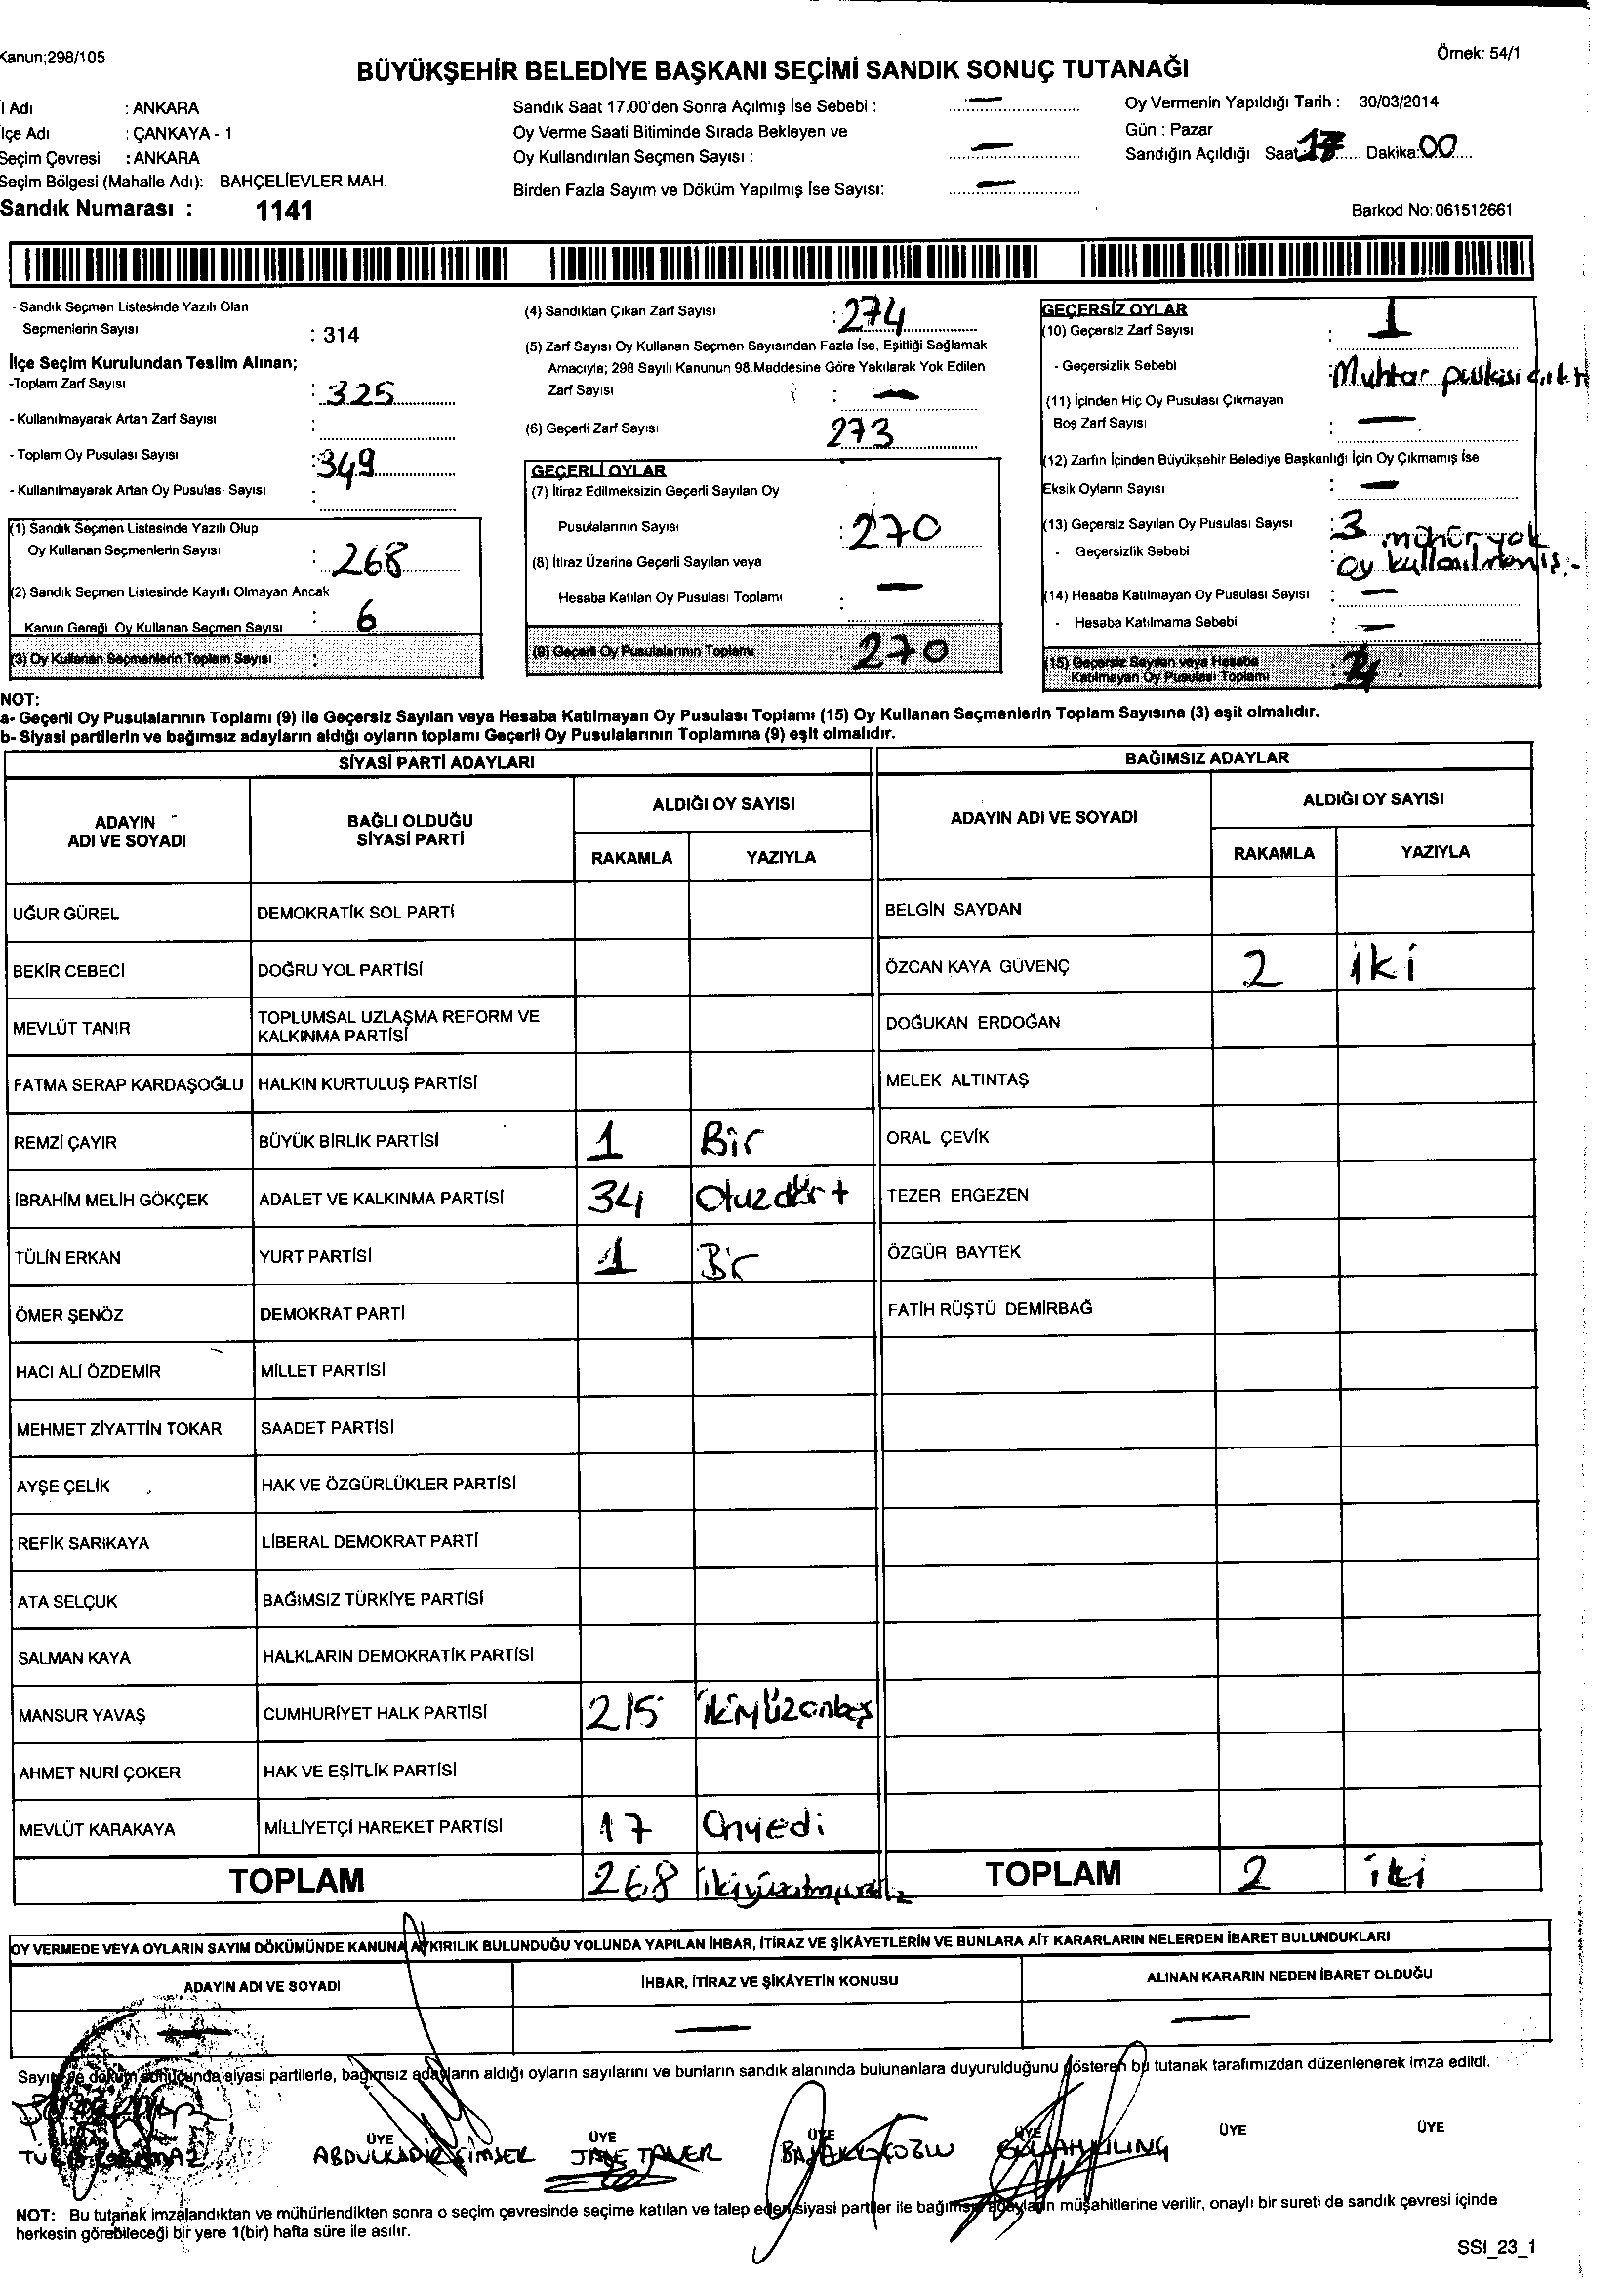 Kanun;298/105
Örnek: 54/1
BÜYÜKŞEHİR BELEDİYE BAŞKANI SEÇİMİ SANDIK SONUÇ TUTANAĞI
İl Adı : ANKARA
İlçe Adı : ÇANKAYA - 1
Seçim Çevresi : ANKARA
Seçim Bölgesi (Mahalle Adı): BAHÇELİEVLER MAH.
Sandık Numarası : 1141
Sandık Saat 17.00'den Sonra Açılmış İse Sebebi : —
Oy Verme Saati Bitiminde Sırada Bekleyen ve
Oy Kullandırılan Seçmen Sayısı : —
Birden Fazla Sayım ve Döküm Yapılmış İse Sayısı: —
Oy Vermenin Yapıldığı Tarih : 30/03/2014
Gün : Pazar
Sandığın Açıldığı Saat: 17 Dakika: 00
Barkod No: 061512661
- Sandık Seçmen Listesinde Yazılı Olan
Seçmenlerin Sayısı : 314
İlçe Seçim Kurulundan Teslim Alınan;
-Toplam Zarf Sayısı : 325
- Kullanılmayarak Artan Zarf Sayısı :
- Toplam Oy Pusulası Sayısı : 349
- Kullanılmayarak Artan Oy Pusulası Sayısı :
(1) Sandık Seçmen Listesinde Yazılı Olup
Oy Kullanan Seçmenlerin Sayısı : 268
(2) Sandık Seçmen Listesinde Kayıtlı Olmayan Ancak
Kanun Gereği Oy Kullanan Seçmen Sayısı : 6
(3) Oy Kullanan Seçmenlerin Toplam Sayısı :
(4) Sandıktan Çıkan Zarf Sayısı : 274
(5) Zarf Sayısı Oy Kullanan Seçmen Sayısından Fazla İse, Eşitliği Sağlamak
Amacıyla; 298 Sayılı Kanunun 98.Maddesine Göre Yakılarak Yok Edilen
Zarf Sayısı : —
(6) Geçerli Zarf Sayısı 273
GEÇERLİ OYLAR
(7) İtiraz Edilmeksizin Geçerli Sayılan Oy
Pusulalarının Sayısı : 270
(8) İtiraz Üzerine Geçerli Sayılan veya
Hesaba Katılan Oy Pusulası Toplamı : —
(9) Geçerli Oy Pusulalarının Toplamı 270
GEÇERSİZ OYLAR
(10) Geçersiz Zarf Sayısı : 1
- Geçersizlik Sebebi : Muhtar
(11) İçinden Hiç Oy Pusulası Çıkmayan
Boş Zarf Sayısı : —
(12) Zarfın İçinden Büyükşehir Belediye Başkanlığı İçin Oy Çıkmamış İse
Eksik Oyların Sayısı : —
(13) Geçersiz Sayılan Oy Pusulası Sayısı : 3 mühür yok
- Geçersizlik Sebebi : oy kullanılmamış.
(14) Hesaba Katılmayan Oy Pusulası Sayısı : —
- Hesaba Katılmama Sebebi : —
(15) Geçersiz Sayılan veya Hesaba
Katılmayan Oy Pusulası Toplamı :
NOT:
a- Geçerli Oy Pusulalarının Toplamı (9) ile Geçersiz Sayılan veya Hesaba Katılmayan Oy Pusulası Toplamı (15) Oy Kullanan Seçmenlerin Toplam Sayısına (3) eşit olmalıdır.
b- Siyasi partilerin ve bağımsız adayların aldığı oyların toplamı Geçerli Oy Pusulalarının Toplamına (9) eşit olmalıdır.
SİYASİ PARTİ ADAYLARI
ADAYIN ADI VE SOYADI BAĞLI OLDUĞU SİYASİ PARTİ ALDIĞI OY SAYISI
RAKAMLA YAZIYLA
UĞUR GÜREL DEMOKRATİK SOL PARTİ
BEKİR CEBECİ DOĞRU YOL PARTİSİ
MEVLÜT TANIR TOPLUMSAL UZLAŞMA REFORM VE KALKINMA PARTİSİ
FATMA SERAP KARDAŞOĞLU HALKIN KURTULUŞ PARTİSİ
REMZİ ÇAYIR BÜYÜK BİRLİK PARTİSİ 1 Bir
İBRAHİM MELİH GÖKÇEK ADALET VE KALKINMA PARTİSİ 34 Otuzdört
TÜLİN ERKAN YURT PARTİSİ 1 Bir
ÖMER ŞENÖZ DEMOKRAT PARTİ
HACI ALİ ÖZDEMİR MİLLET PARTİSİ
MEHMET ZİYATTİN TOKAR SAADET PARTİSİ
AYŞE ÇELİK HAK VE ÖZGÜRLÜKLER PARTİSİ
REFİK SARIKAYA LİBERAL DEMOKRAT PARTİ
ATA SELÇUK BAĞIMSIZ TÜRKİYE PARTİSİ
SALMAN KAYA HALKLARIN DEMOKRATİK PARTİSİ
MANSUR YAVAŞ CUMHURİYET HALK PARTİSİ 215 İkiyüzonbeş
AHMET NURİ ÇOKER HAK VE EŞİTLİK PARTİSİ
MEVLÜT KARAKAYA MİLLİYETÇİ HAREKET PARTİSİ 17 Onyedi
TOPLAM 268
BAĞIMSIZ ADAYLAR
ADAYIN ADI VE SOYADI ALDIĞI OY SAYISI
RAKAMLA YAZIYLA
BELGİN SAYDAN
ÖZCAN KAYA GÜVENÇ 2 iki
DOĞUKAN ERDOĞAN
MELEK ALTINTAŞ
ORAL ÇEVİK
TEZER ERGEZEN
ÖZGÜR BAYTEK
FATİH RÜŞTÜ DEMİRBAĞ
TOPLAM 2 iki
OY VERMEDE VEYA OYLARIN SAYIM DÖKÜMÜNDE KANUNA AYKIRILIK BULUNDUĞU YOLUNDA YAPILAN İHBAR, İTİRAZ VE ŞİKÂYETLERİN VE BUNLARA AİT KARARLARIN NELERDEN İBARET BULUNDUKLARI
ADAYIN ADI VE SOYADI İHBAR, İTİRAZ VE ŞİKÂYETİN KONUSU ALINAN KARARIN NEDEN İBARET OLDUĞU
— — —
Sayım ve döküm sonucunda siyasi partilerle, bağımsız adayların aldığı oyların sayılarını ve bunların sandık alanında bulunanlara duyurulduğunu gösteren bu tutanak tarafımızdan düzenlenerek imza edildi.
ÜYE ÜYE ÜYE ÜYE ÜYE ÜYE
ABDULKADİR ŞİMŞEK JALE TANER KILINÇ
NOT: Bu tutanak imzalandıktan ve mühürlendikten sonra o seçim çevresinde seçime katılan ve talep eden siyasi partiler ile bağımsız adayların müşahitlerine verilir, onaylı bir sureti de sandık çevresi içinde
herkesin görebileceği bir yere 1(bir) hafta süre ile asılır.
SSI_23_1